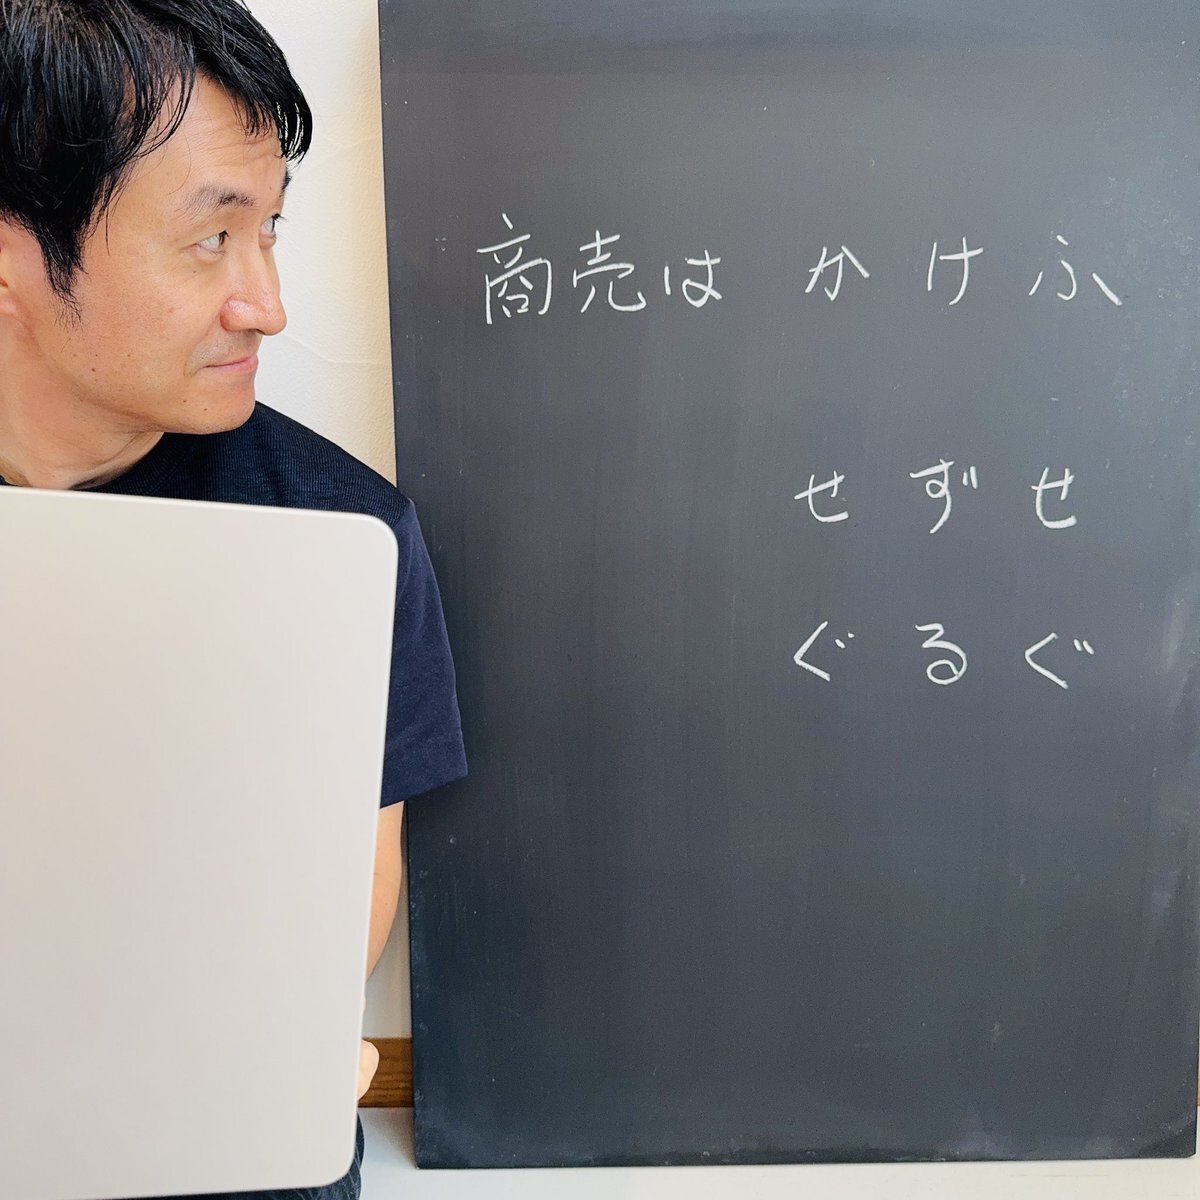 商売は か け ふ
せ ず せ
ぐ る ぐ